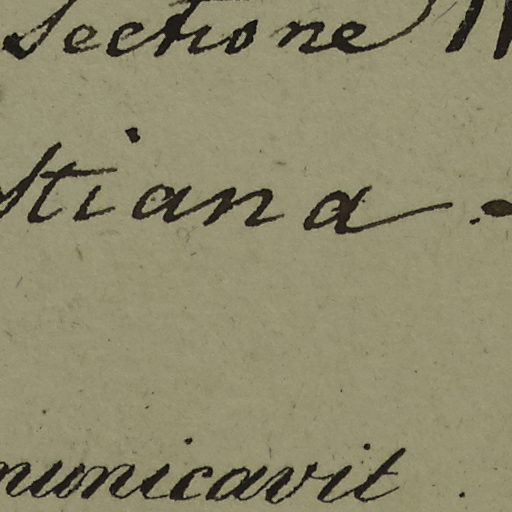 Sectione
stiana -
municavit.